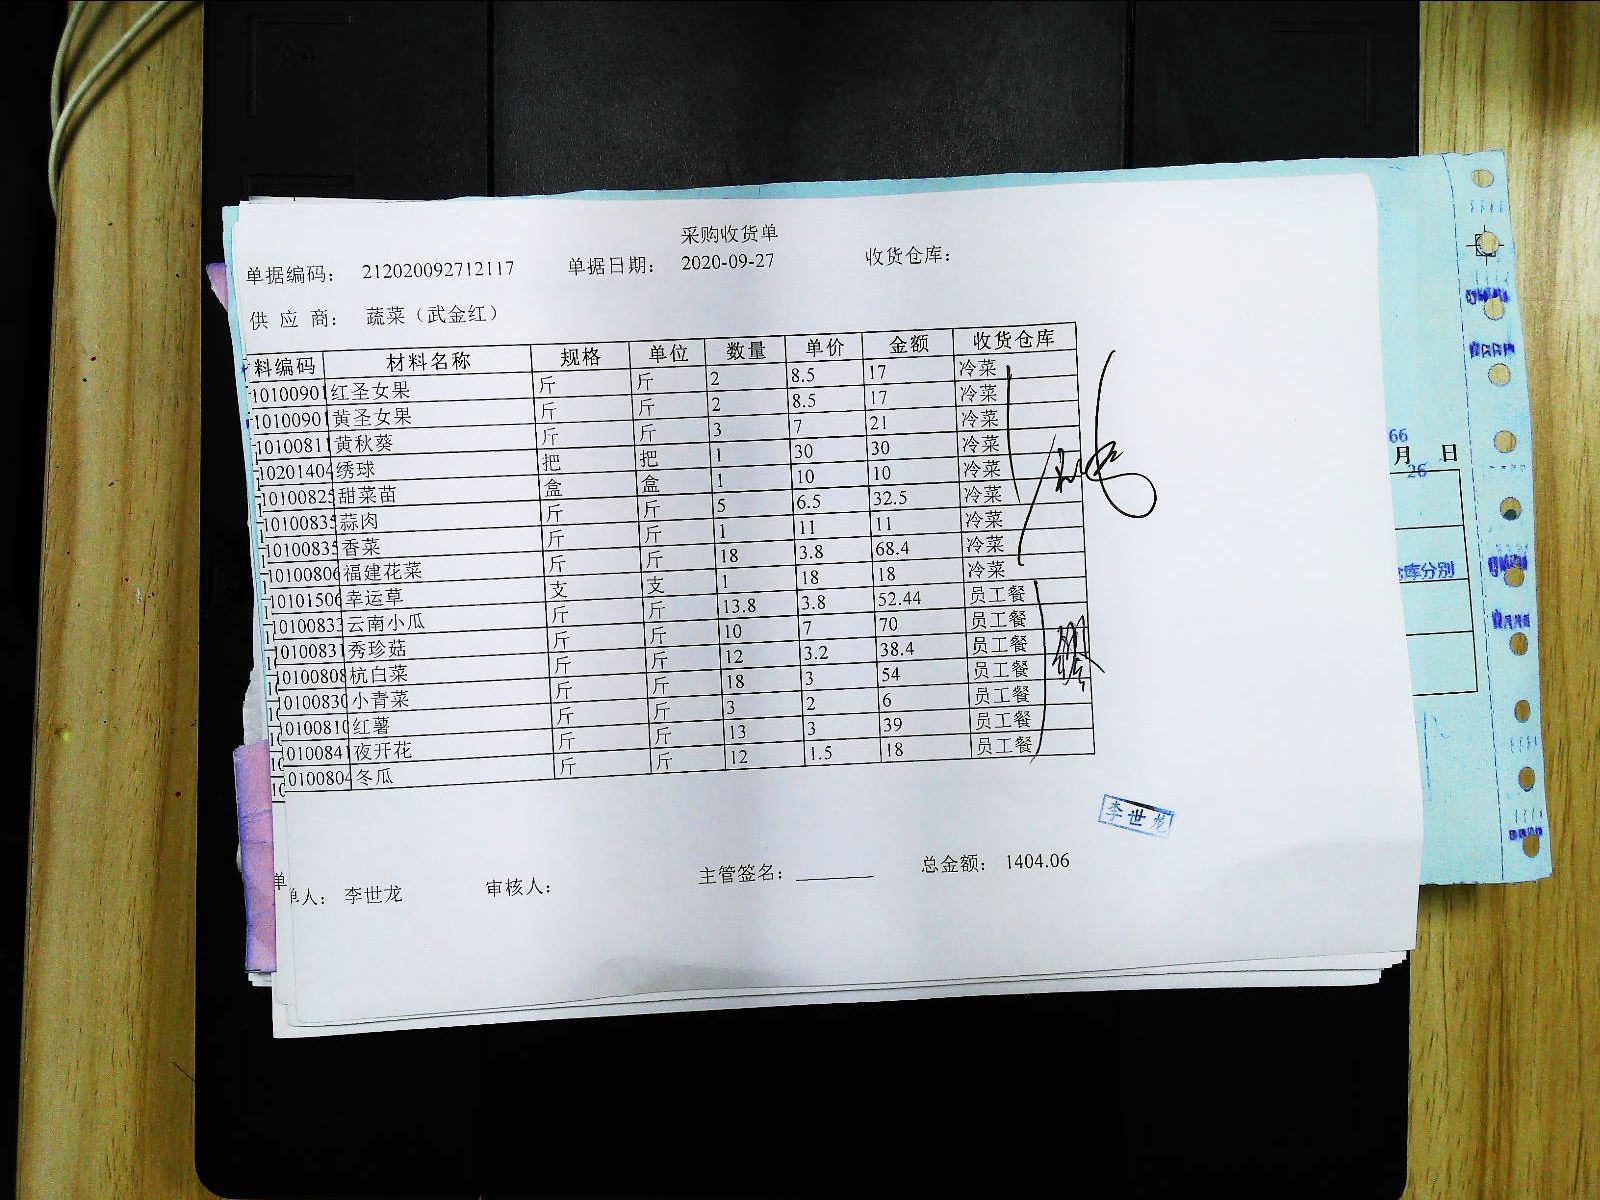 采购收货单
单据编码： 212020092712117 单据日期： 2020-09-27 收货仓库：
供 应 商： 蔬菜（武金红）
料编码 材料名称 规格 单位 数量 单价 金额 收货仓库
1010090 红圣女果 斤 斤 2 8.5 17 冷菜
1010090 黄圣女果 斤 斤 2 8.5 17 冷菜
1010081 黄秋葵 斤 斤 3 7 21 冷菜
10201404 绣球 把 把 1 30 30 冷菜
1010082 甜菜苗 盒 盒 1 10 10 冷菜
1010083 蒜肉 斤 斤 5 6.5 32.5 冷菜
1010083 香菜 斤 斤 1 11 11 冷菜
1010080 福建花菜 斤 斤 18 3.8 68.4 冷菜
1010150 幸运草 支 支 1 18 18 冷菜
1010083 云南小瓜 斤 斤 13.8 3.8 52.44 员工餐
1010083 秀珍菇 斤 斤 10 7 70 员工餐
1010080 杭白菜 斤 斤 12 3.2 38.4 员工餐
1010083 小青菜 斤 斤 18 3 54 员工餐
1010081 红薯 斤 斤 3 2 6 员工餐
010084 夜开花 斤 斤 13 3 39 员工餐
010080 冬瓜 斤 斤 12 1.5 18 员工餐
李世龙
单人： 李世龙 审核人： 主管签名： 总金额： 1404.06
66
月 日
26
库分别